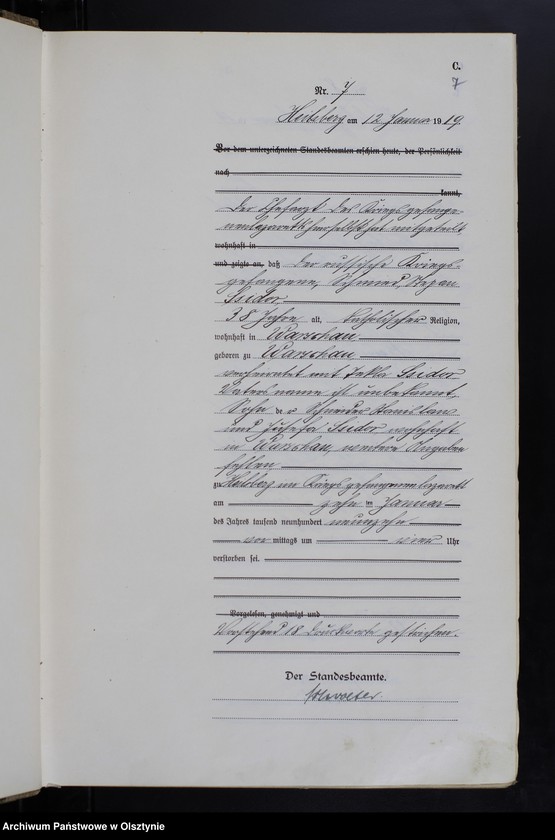 C.
7
Nr. 7
Heilsberg am 12 Januar 1919.
Vor dem unterzeichneten Standesbeamten erschien heute, der Persönlichkeit
nach
kannt,
Der Chefarzt des Kriegsgefange-
nenlazaretts hierselbst hat mitgeteilt
wohnhaft in
und zeigte an, daß der russische Kriegs-
gefangene,
Isidor
38 Jahre alt, katholischer Religion,
wohnhaft in Warschau
geboren zu Warschau
verheiratet mit Tekla Isidor
Vatersname ist unbekannt,
Sohn Stanislaus
und Josefa Isidor wohnhaft
in Warschau, weitere Angaben
fehlen
zu Heilsberg im Kriegsgefangenenlazarett
am zehn ten Januar
des Jahres tausend neunhundert neunzehn
vor mittags um vier Uhr
verstorben sei.
Vorgelesen, genehmigt und
Vorstehend 18 Druckworte gestrichen.
Der Standesbeamte.
Archiwum Państwowe w Olsztynie